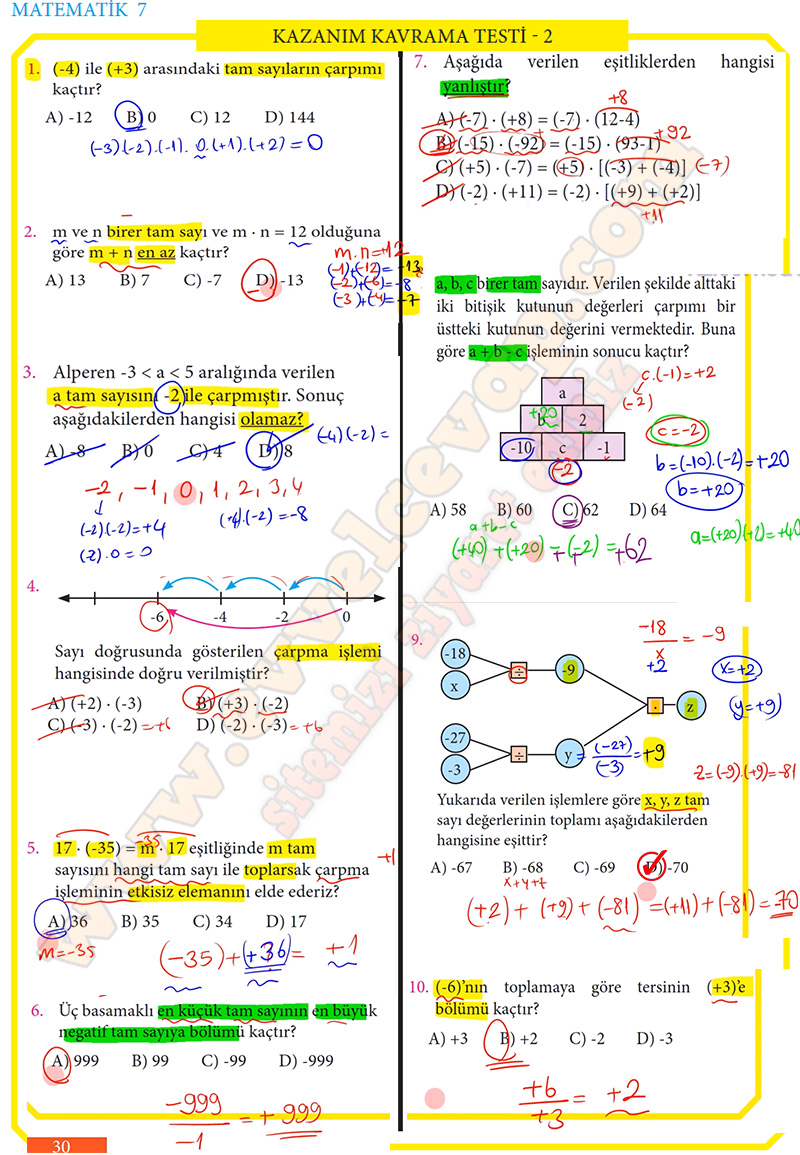 MATEMATİK 7
KAZANIM KAVRAMA TESTİ - 2
1. (-4) ile (+3) arasındaki tam sayıların çarpımı
kaçtır?
A) -12 B) 0 C) 12 D) 144
(-3).(-2).(-1). 0.(+1).(+2)=0
2. m ve n birer tam sayı ve m · n = 12 olduğuna
göre m + n en az kaçtır?
m.n=+12
(-1)+(-12)= -13
(-2)+(-6)= -8
(-3)+(-4)= -7
A) 13 B) 7 C) -7 D) -13
3. Alperen -3 < a < 5 aralığında verilen
a tam sayısını -2 ile çarpmıştır. Sonuç
aşağıdakilerden hangisi olamaz?
A) -8 B) 0 C) 4 D) 8
(-4)(-2)=
-2, -1, 0, 1, 2, 3, 4
(-2).(-2)=+4
(-2).0=0
(4).(-2)=-8
4.
-6 -4 -2 0
Sayı doğrusunda gösterilen çarpma işlemi
hangisinde doğru verilmiştir?
A) (+2) · (-3) B) (+3) · (-2)
C) (-3) · (-2) =+6 D) (-2) · (-3) =+6
5. 17 · (-35) = m · 17 eşitliğinde m tam
-35
sayısını hangi tam sayı ile toplarsak çarpma
+1
işleminin etkisiz elemanını elde ederiz?
A) 36 B) 35 C) 34 D) 17
m=-35
(-35)+(+36)= +1
6. Üç basamaklı en küçük tam sayının en büyük
negatif tam sayıya bölümü kaçtır?
A) 999 B) 99 C) -99 D) -999
-999
-1
= +999
30
7. Aşağıda verilen eşitliklerden hangisi
yanlıştır?
+8
A) (-7) · (+8) = (-7) · (12-4)
B) (-15) · (-92) = (-15) · (93-1)
+92
C) (+5) · (-7) = (+5) · [(-3) + (-4)] (-7)
D) (-2) · (+11) = (-2) · [(+9) + (+2)]
+11
a, b, c birer tam sayıdır. Verilen şekilde alttaki
iki bitişik kutunun değerleri çarpımı bir
üstteki kutunun değerini vermektedir. Buna
göre a + b - c işleminin sonucu kaçtır?
c.(-1)=+2
(-2)
a
+20
b 2
-10 c -1
-2
c=-2
b=(-10).(-2)=+20
b=+20
A) 58 B) 60 C) 62 D) 64
a+b-c
(+40) + (+20) - (-2) = +62
a=(+20)(+2)=+40
9.
-18
x
÷
-9
-27
-3
÷
y
·
z
-18
x
= -9
+2
x=+2
(y=+9)
= (-27)
(-3)
= +9
z=(-9).(+9)=-81
Yukarıda verilen işlemlere göre x, y, z tam
sayı değerlerinin toplamı aşağıdakilerden
hangisine eşittir?
A) -67 B) -68 C) -69 D) -70
x+y+z
(+2) + (+9) + (-81) = (+11) + (-81) = 70
10. (-6)'nın toplamaya göre tersinin (+3)'e
bölümü kaçtır?
A) +3 B) +2 C) -2 D) -3
+6
+3
= +2
www.evvelcevap.com
sitemizi ziyaret ediniz